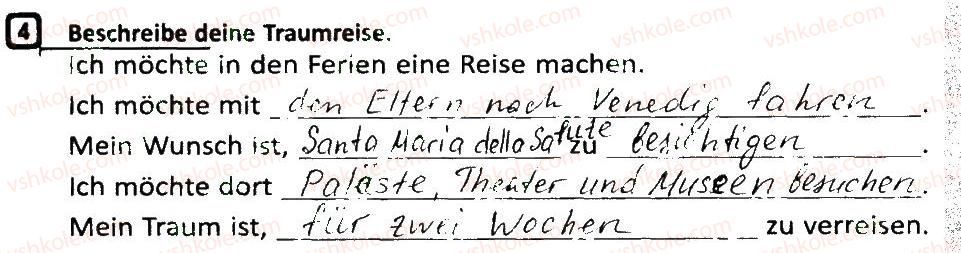 4 Beschreibe deine Traumreise.
Ich möchte in den Ferien eine Reise machen.
Ich möchte mit den Eltern nach Venedig fahren.
Mein Wunsch ist, Santa Maria della Salute zu besichtigen.
Ich möchte dort Paläste, Theater und Museen besuchen.
Mein Traum ist, für zwei Wochen zu verreisen.